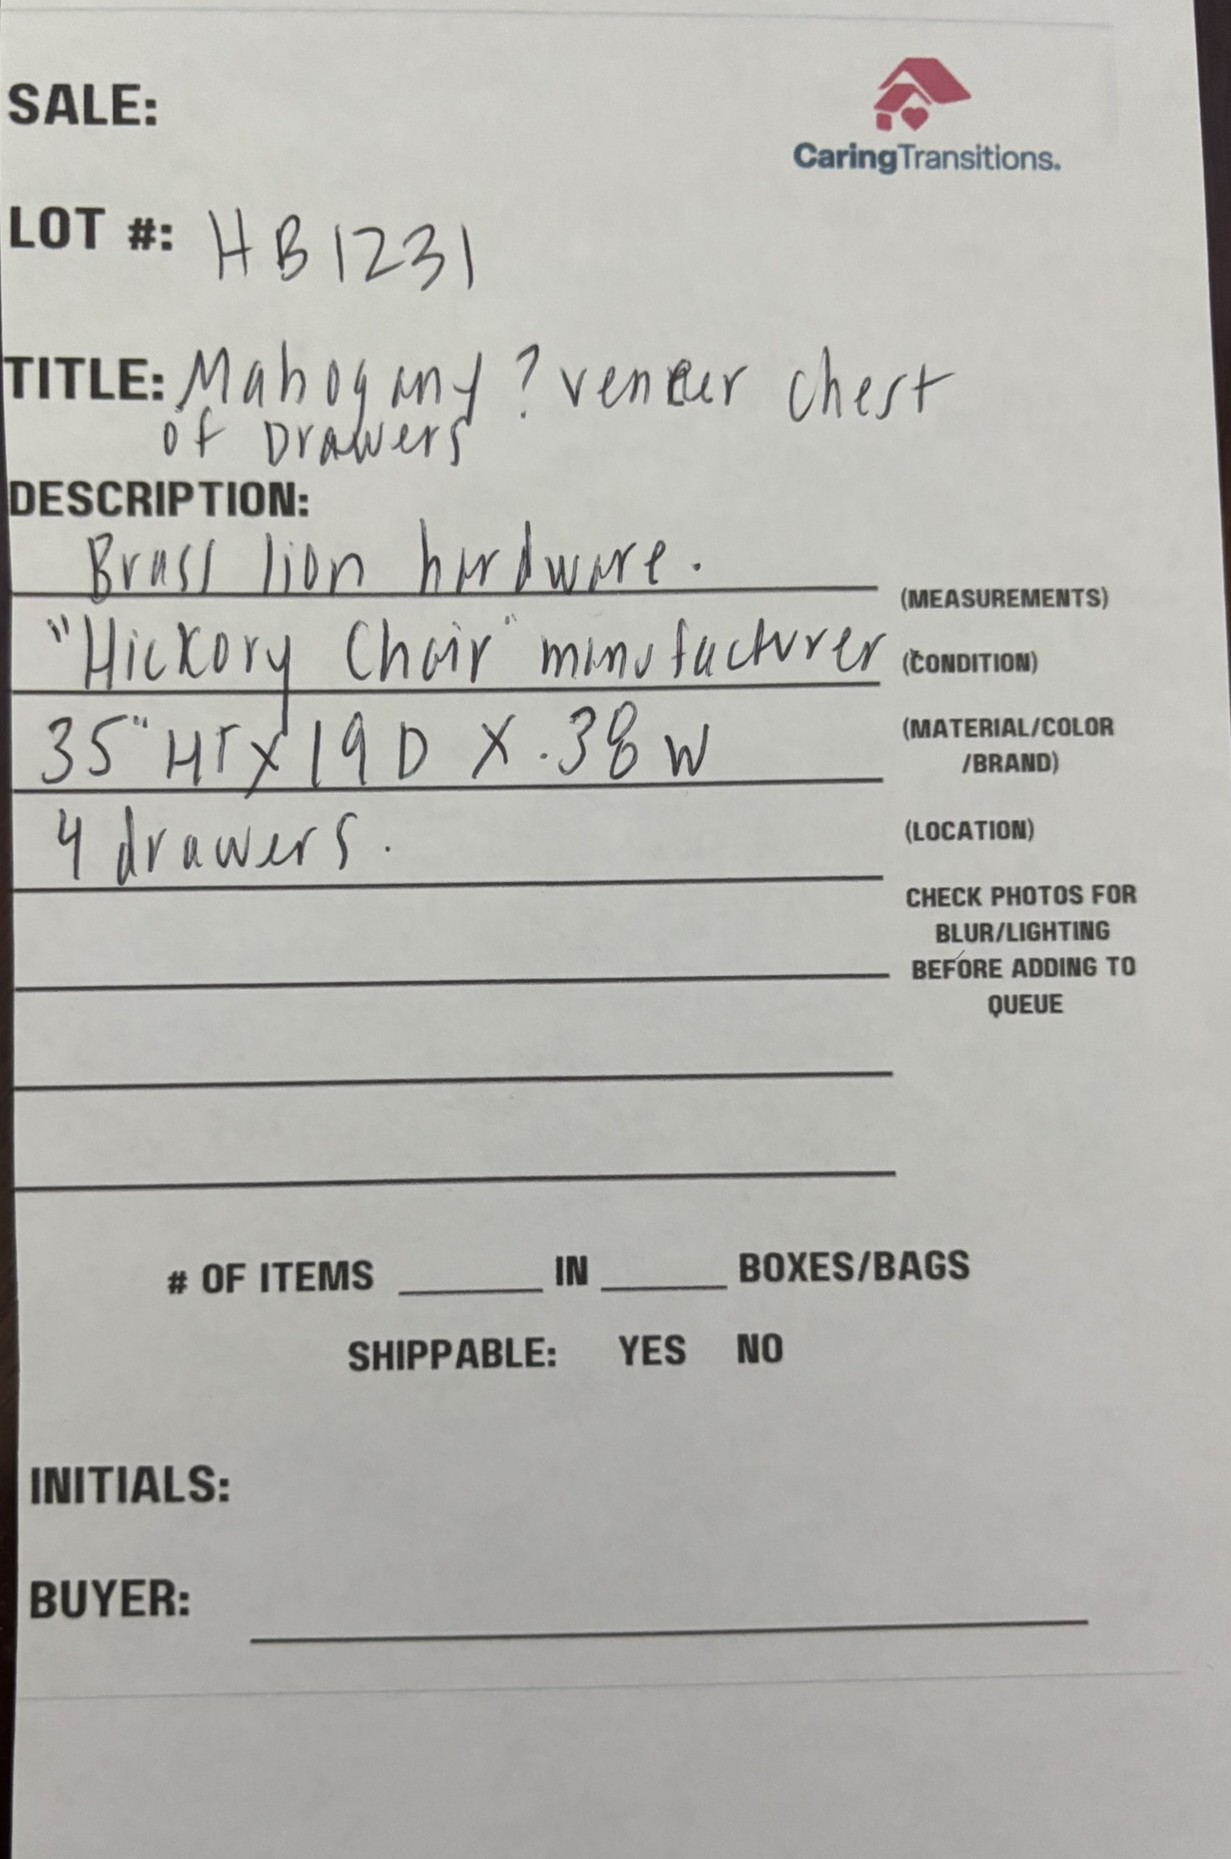 SALE:
CaringTransitions.
LOT #: HB1231
TITLE: Mahogany ? veneer chest
of Drawers
DESCRIPTION:
Brass lion hardware.
(MEASUREMENTS)
"Hickory Chair" manufacturer
(CONDITION)
35" HT X 19 D X .38 W
(MATERIAL/COLOR
/BRAND)
4 drawers.
(LOCATION)
CHECK PHOTOS FOR
BLUR/LIGHTING
BEFORE ADDING TO
QUEUE
# OF ITEMS ______ IN ______ BOXES/BAGS
SHIPPABLE: YES NO
INITIALS:
BUYER: